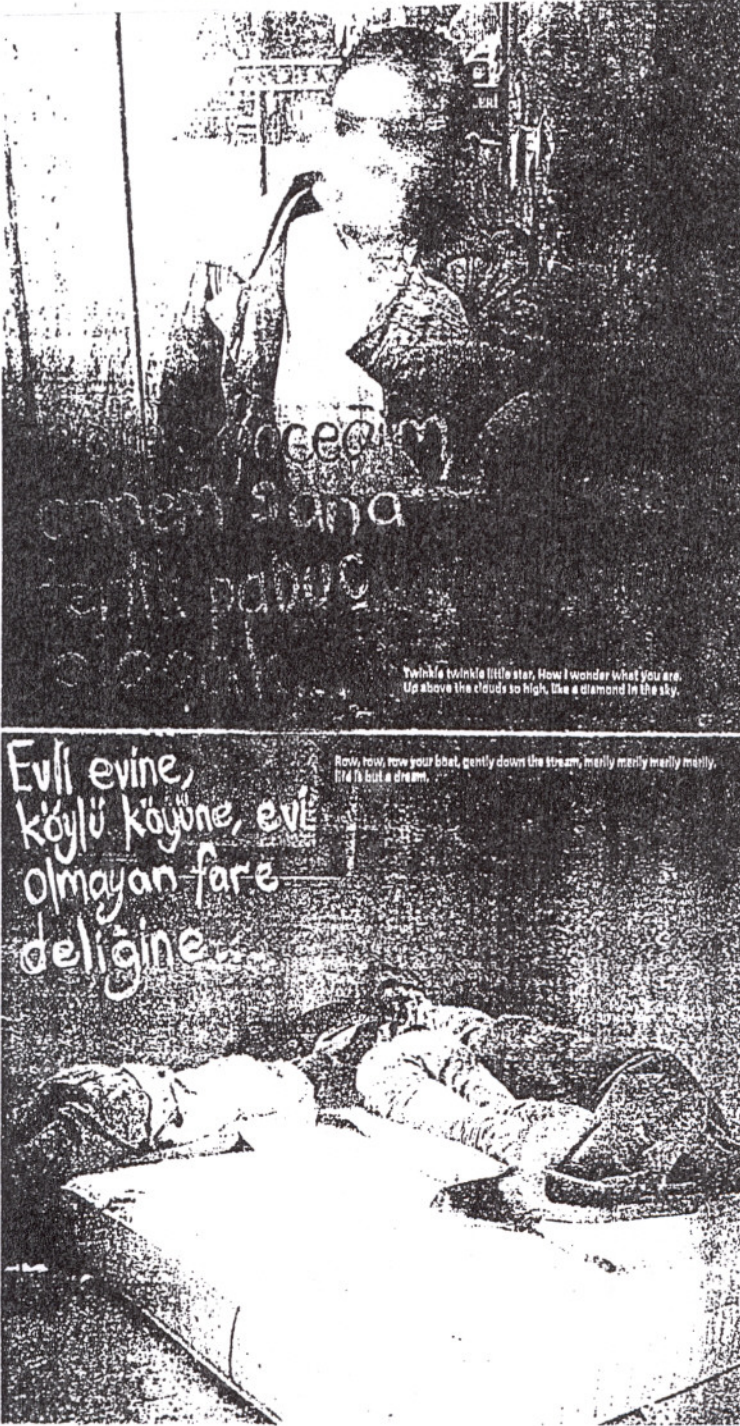 LERİ
böceğim
annem sana
terlik pabuç
Twinkle twinkle little star, How I wonder what you are.
Up above the clouds so high, like a diamond in the sky.
Evli evine,
köylü köyüne, evi
olmayan fare
deliğine....
Row, row, row your boat, gently down the stream, merily merily merily merily,
life is but a dream.